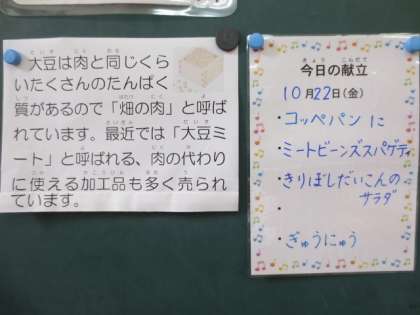 大豆は肉と同じくら
いたくさんのたんぱく
質があるので「畑の肉」と呼ば
れています。最近では「大豆ミ
ート」と呼ばれる、肉の代わり
に使える加工品も多く売られ
ています。
今日の献立
10月22日(金)
・コッペパン に
・ミートビーンズスパゲティ
・きりぼしだいこんの
サラダ
・
・ぎゅうにゅう